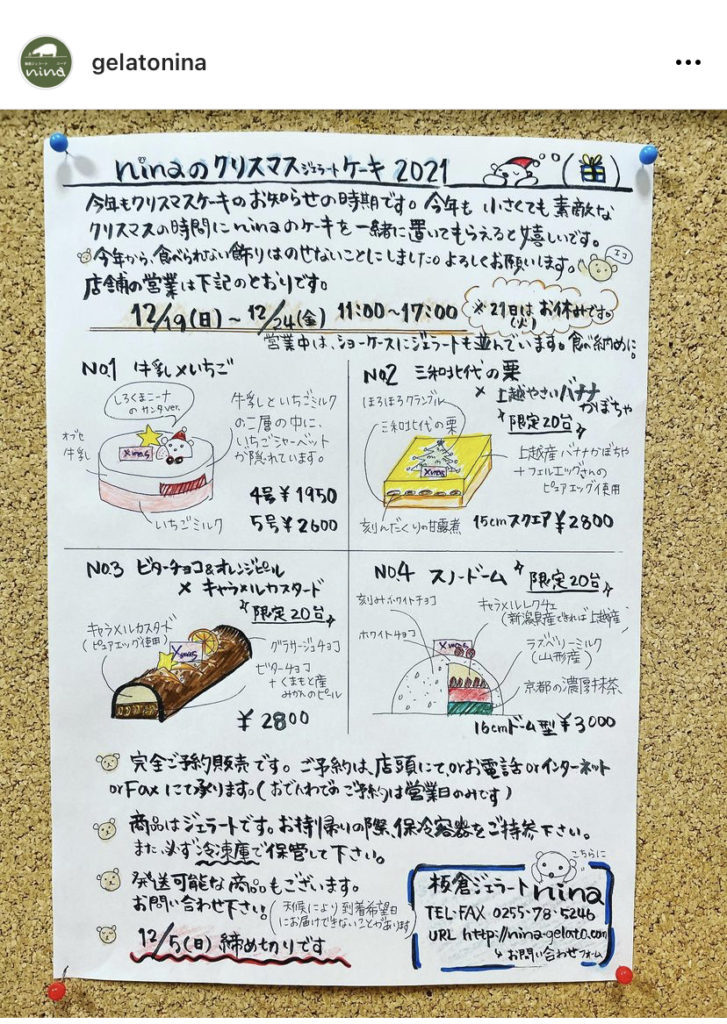 nina
gelatonina
ninaのクリスマスジェラートケーキ 2021
今年もクリスマスケーキのお知らせの時期です。今年も 小さくても素敵な
クリスマスの時間にninaのケーキを一緒に置いてもらえると嬉しいです。
今年から、食べられない飾りはのせないことにしました。よろしくお願いします。
エコ
店舗の営業は下記のとおりです。
12/19(日)~12/24(金) 11:00~17:00
※21日は お休みです。
(火)
営業中は、ショーケースにジェラートも並んでいます。食べ納めに。
No.1 牛乳×いちご
しろくまニーナ
のサンタver.
オブセ
牛乳
Xmas
牛乳といちごミルク
の二層の中に、
いちごシャーベット
が隠れています。
4号¥1950
5号¥2600
いちごミルク
No.2 三和北代の栗
× 上越やさいバナナ
かぼちゃ
限定20台
ほろほろクランブル
三和北代の栗
Xmas
上越産バナナかぼちゃ
+フェルエッグさんの
ピュアエッグ使用
刻んだくりの甘露煮
15cmスクエア¥2800
No.3 ビターチョコ&オレンジピール
× キャラメルカスタード
限定20台
キャラメルカスタード
(ピュアエッグ使用)
Xmas
グラサージュチョコ
ビターチョコ
+くまもと産
みかんのピール
¥2800
No.4 スノードーム
限定20台
刻みホワイトチョコ
ホワイトチョコ
Xmas
キャラメルレクチェ
(新潟県産できれば上越産)
ラズベリーミルク
(山形産)
京都の濃厚抹茶
16cmドーム型¥3000
完全ご予約販売です。ご予約は、店頭にて、orお電話orインターネット
orFaxにて承ります。(おでんわでのご予約は営業日のみです)
商品はジェラートです。お持ち帰りの際、保冷容器をご持参下さい。
また、必ず冷凍庫で保管して下さい。
発送可能な商品もございます。
お問い合わせ下さい。
(天候により到着希望日
にお届けできないことがあります)
12/5(日)締め切りです
こちらに
板倉ジェラートnina
TEL・FAX 0255-78-5246
URL http://nina-gelato.com
↳お問い合わせフォーム